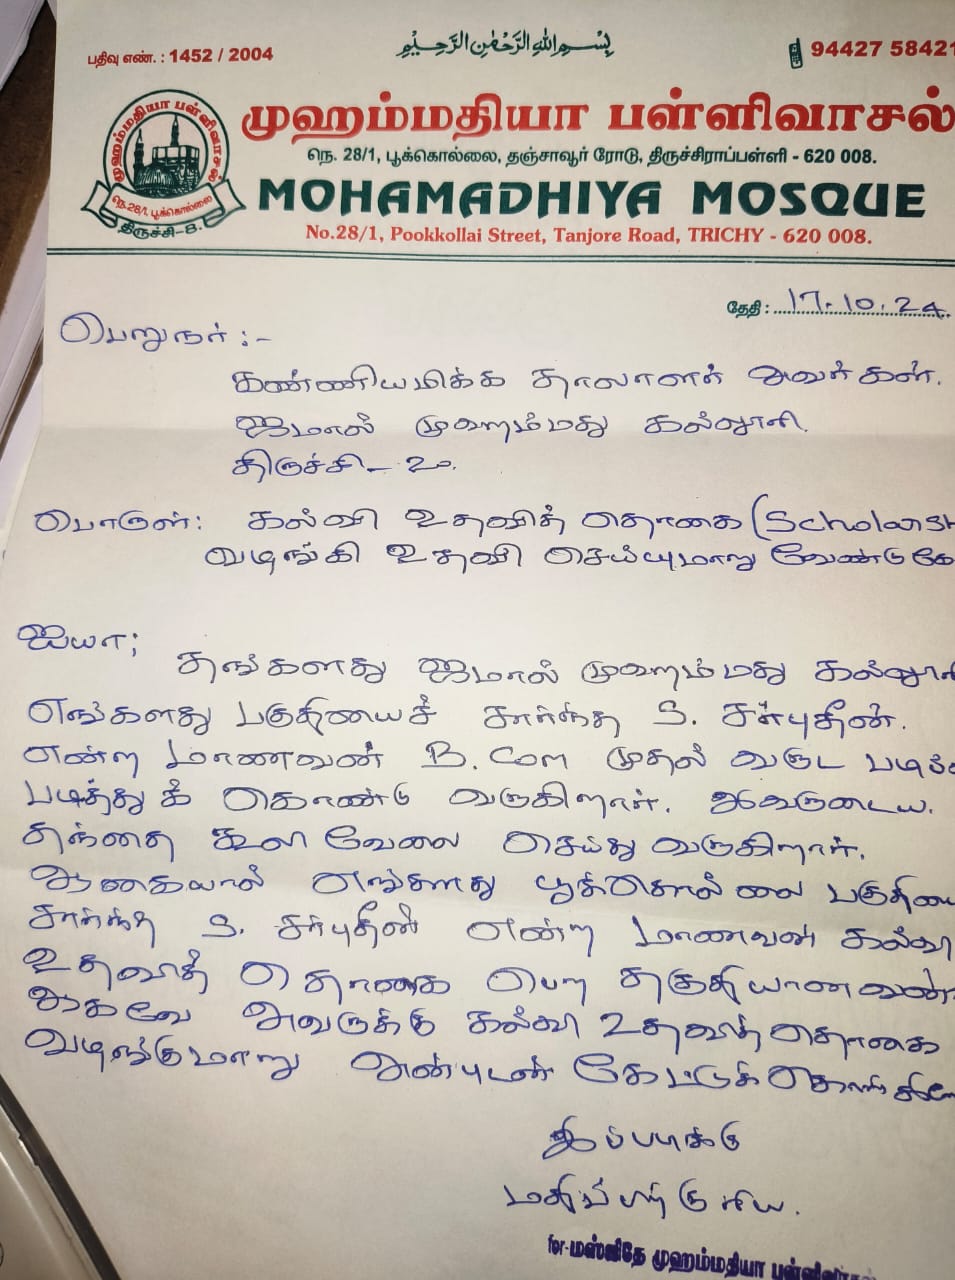 பதிவு எண். : 1452 / 2004
بِسْمِ اللهِ الرَّحْمٰنِ الرَّحِيْمِ
94427 58421
முஹம்மதியா பள்ளிவாசல்
நெ. 28/1, பூக்கொல்லை, தஞ்சாவூர் ரோடு, திருச்சிராப்பள்ளி - 620 008.
MOHAMADHIYA MOSQUE
No.28/1, Pookkollai Street, Tanjore Road, TRICHY - 620 008.
முஹம்மதியா பள்ளிவாசல்
நெ.28/1. பூக்கொல்லை
திருச்சி-8.
தேதி : 17.10.24
பெறுநர் :-
கண்ணியமிக்க தாலாளர் அவர்கள்.
ஜமால் முஹம்மது கல்லூரி.
திருச்சி - 20.
பொருள்: கல்வி உதவித் தொகை (Scholarsh
வழங்கி உதவி செய்யுமாறு வேண்டுகோ
ஐயா;
தங்களது ஜமால் முஹம்மது கல்லூரி
எங்களது பகுதியைச் சார்ந்த S. சர்புதீன்.
என்ற மாணவன் B. Com முதல் வருட படிப்
படித்துக் கொண்டு வருகிறார். இவருடைய.
தந்தை கூலி வேலை செய்து வருகிறார்.
ஆகையால் எங்களது பூக்கொல்லை பகுதியை
சார்ந்த S. சர்புதீன் என்ற மாணவன் கல்வி
உதவித் தொகை பெற தகுதியானவன்
ஆகவே அவருக்கு கல்வி உதவித் தொகை
வழங்குமாறு அன்புடன் கேட்டுக்கொள்கி
இப்படிக்கு
for-மஸ்ஜிதே முஹம்மதியா பள்ளிவாசல்